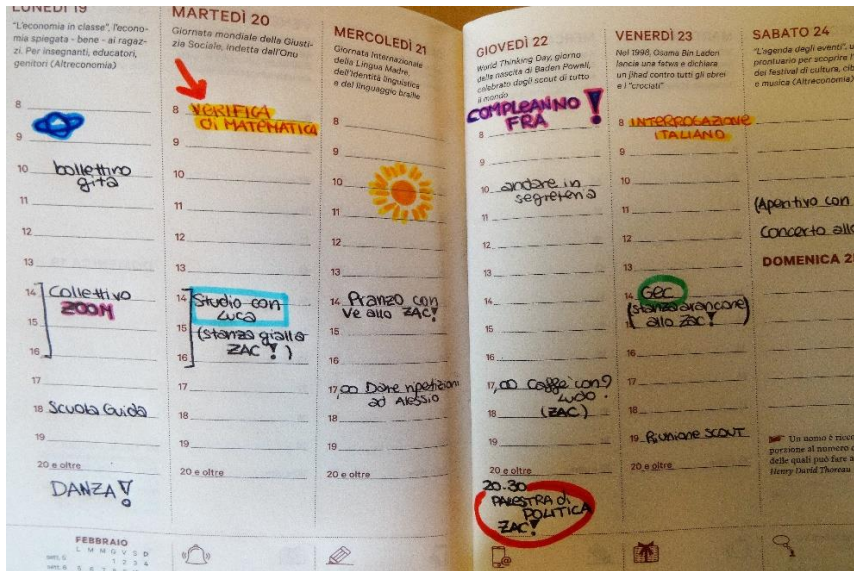 LUNEDÌ 19
"L'economia in classe", l'econo-
mia spiegata - bene - ai ragaz-
zi. Per insegnanti, educatori,
genitori (Altreconomia)
8
9
10 bollettino
gita
11
12
13
14 Collettivo
ZOOM
15
16
17
18 Scuola Guida
19
20 e oltre
DANZA!
FEBBRAIO
L M M G V S D
1 2 3 4
MARTEDÌ 20
Giornata mondiale della Giusti-
zia Sociale, indetta dall'Onu
8 VERIFICA
di MATEMATICA
9
10
11
12
13
14 Studio con
Luca
15 (stanza gialla
ZAC!)
16
17
18
19
20 e oltre
MERCOLEDÌ 21
Giornata Internazionale
della Lingua Madre,
dell'identità linguistica
e del linguaggio braille
8
9
10
11
12
13
14 Pranzo con
Ve allo ZAC!
15
16
17,00 Dare ripetizioni
ad Alessio
18
19
20 e oltre
GIOVEDÌ 22
World Thinking Day, giorno
della nascita di Baden Powell,
celebrato dagli scout di tutto
il mondo
COMPLEANNO
FRA!
8
9
10 andare in
segreteria
11
12
13
14
15
16
17,00 Caffè con
Ludo
18 (ZAC)
19
20 e oltre
20.30
PALESTRA di
POLITICA
ZAC!
VENERDÌ 23
Nel 1998, Osama Bin Laden
lancia una fatwa e dichiara
un jihad contro tutti gli ebrei
e i "crociati"
8 INTERROGAZIONE
ITALIANO
9
10
11
12
13
14 GEC
(stanza arancione
allo ZAC!)
15
16
17
18
19 Riunione SCOUT
20 e oltre
SABATO 24
"L'agenda degli eventi", u
prontuario per scoprire l'
dei festival di cultura, cib
e musica (Altreconomia)
(Aperitivo con
Concerto allo
DOMENICA 2
Un uomo è ricco
porzione al numero
delle quali può fare a
Henry David Thoreau